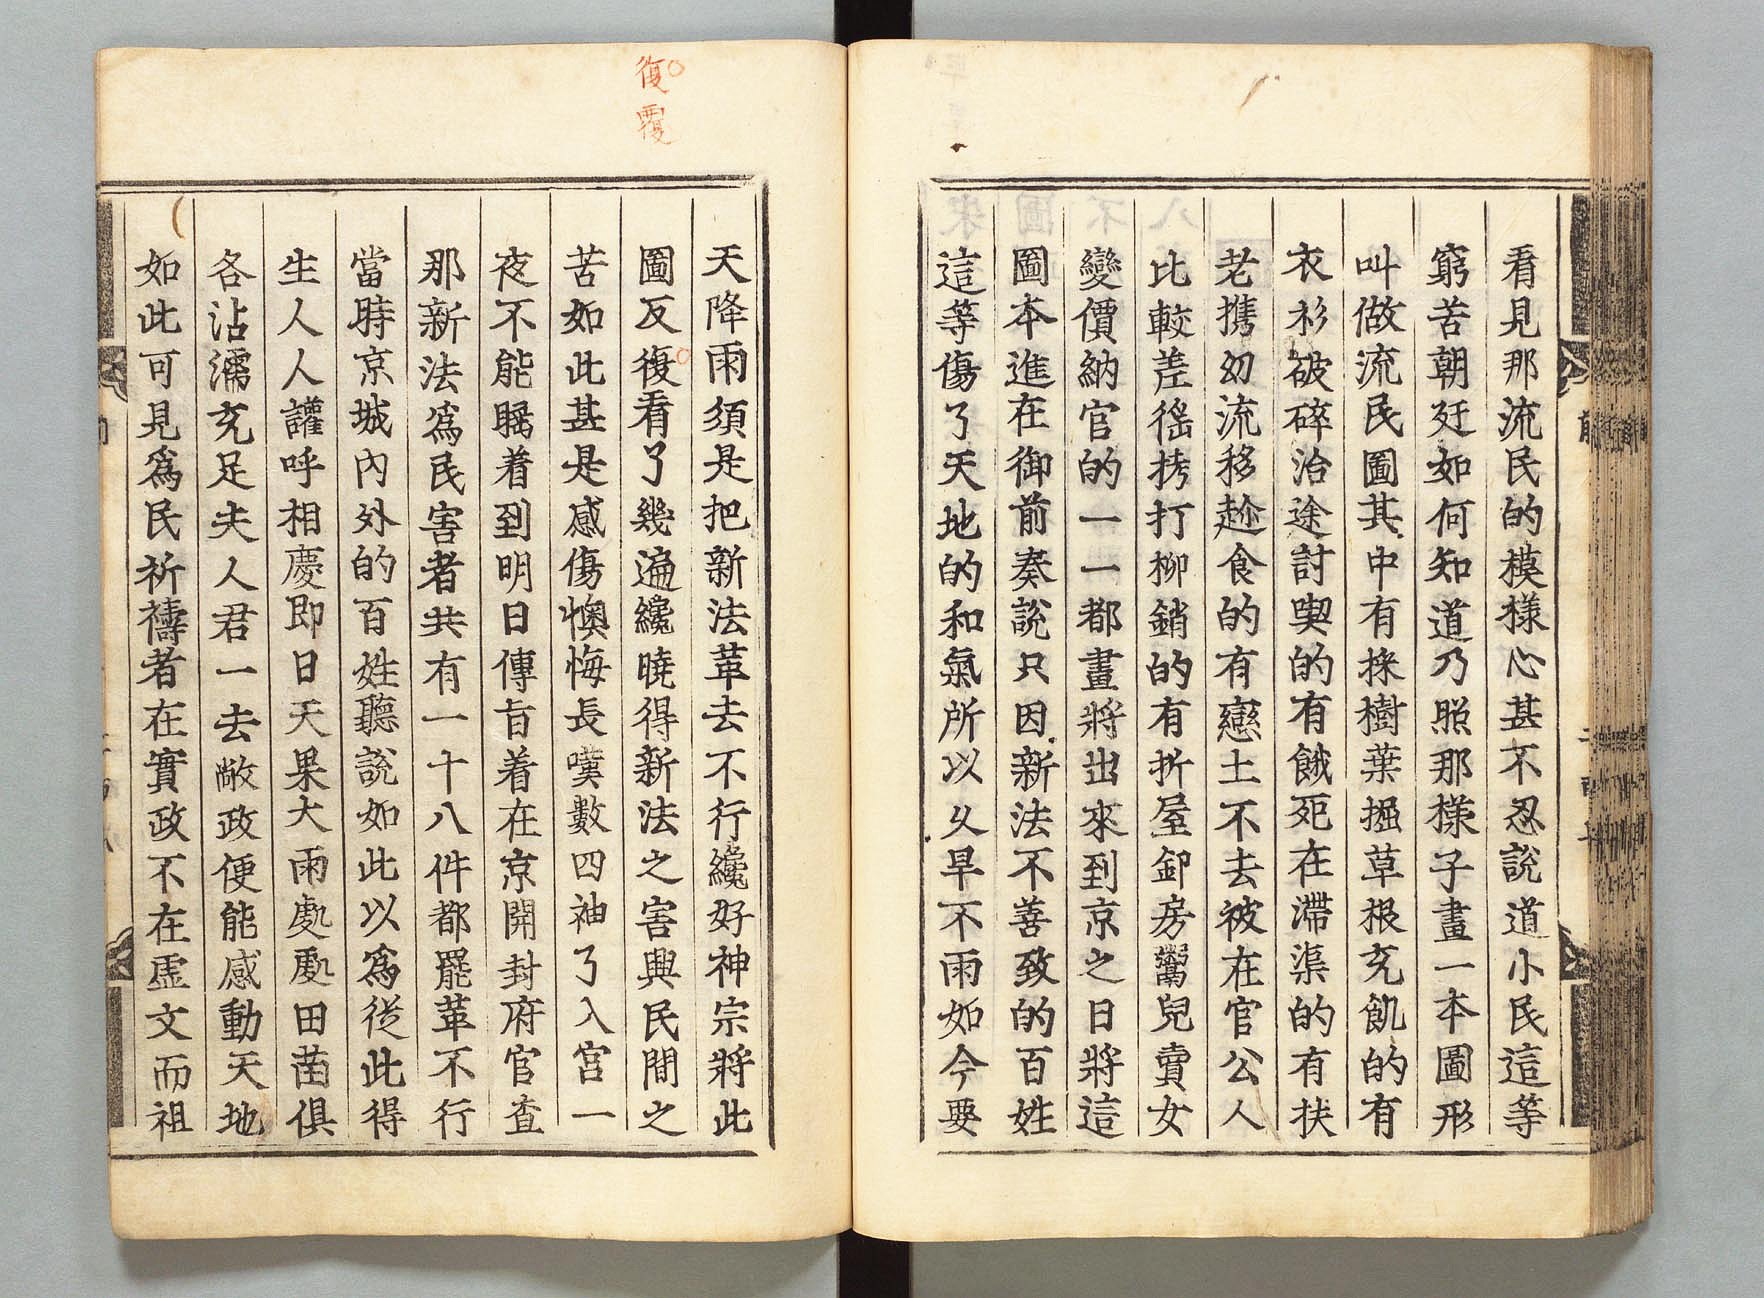 看見那流民的模樣心甚不忍說道小民這等
窮苦朝廷如何知道乃照那樣子畫一本圖形
叫做流民圖其中有採樹葉掘草根充飢的有
衣衫破碎沿途討喫的有餓死在滯渠的有扶
老携幼流移趂食的有戀土不去被在官公人
比較差徭拷打枷銷的有折屋卸房鬻兒賣女
變價納官的一一都畫將出來到京之日將這
圖本進在御前奏說只因新法不善致的百姓
這等傷了天地的和氣所以久旱不雨如今要
復
覆
天降雨須是把新法革去不行纔好神宗將此
圖反復看了幾遍纔曉得新法之害與民間之
苦如此甚是感傷懊悔長嘆數四袖了入宮一
夜不能瞩着到明日傳旨着在京開封府官查
那新法爲民害者共有一十八件都罷革不行
當時京城內外的百姓聽說如此以爲從此得
生人人讙呼相慶即日天果大雨處處田苗俱
各沾濡充足夫人君一去敝政便能感動天地
如此可見爲民祈禱者在實政不在虛文而祖